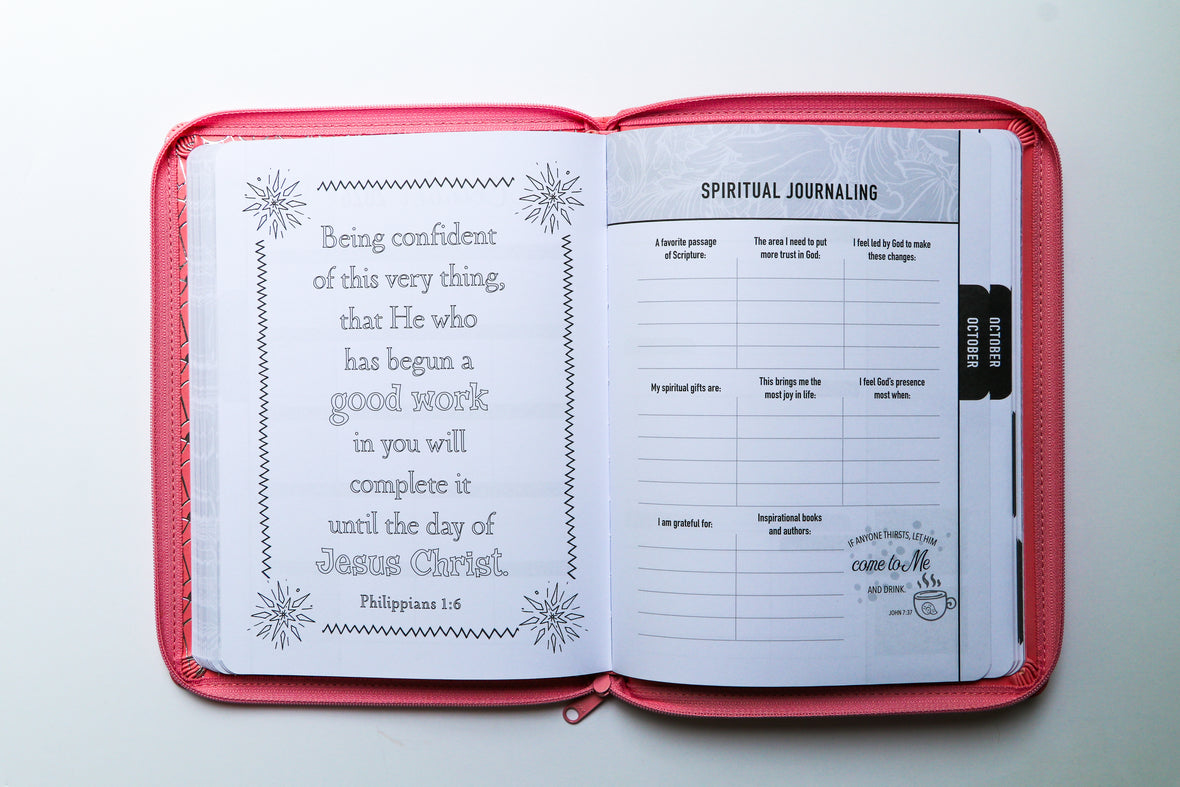 Being confident
of this very thing,
that He who
has begun a
good work
in you will
complete it
until the day of
Jesus Christ.
Philippians 1:6
SPIRITUAL JOURNALING
A favorite passage
of Scripture:
The area I need to put
more trust in God:
I feel led by God to make
these changes:
My spiritual gifts are:
This brings me the
most joy in life:
I feel God's presence
most when:
I am grateful for:
Inspirational books
and authors:
IF ANYONE THIRSTS, LET HIM
come to Me
AND DRINK.
JOHN 7:37
OCTOBER
OCTOBER